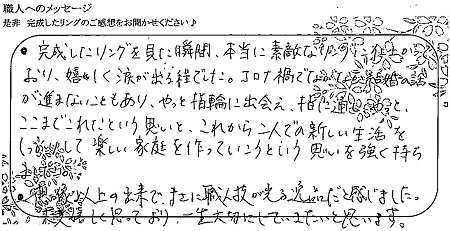 職人へのメッセージ
是非 完成したリングのご感想をお聞かせください♪
・完成したリングを見た瞬間、本当に素敵なリングに仕上が
おり、嬉しく涙が出る程でした。コロナ禍でなかなか結婚の話
が進まないこともあり、やっと指輪に出会え、指に通すと、
ここまでこれたという思いと、これから二人での新しい生活を
して楽しい家庭を作っていこうという思いを強く持ち
以上の出来で、まさに職人技が光る逸品だと感じました。
思っており、一生大切にしていきたいと思います。